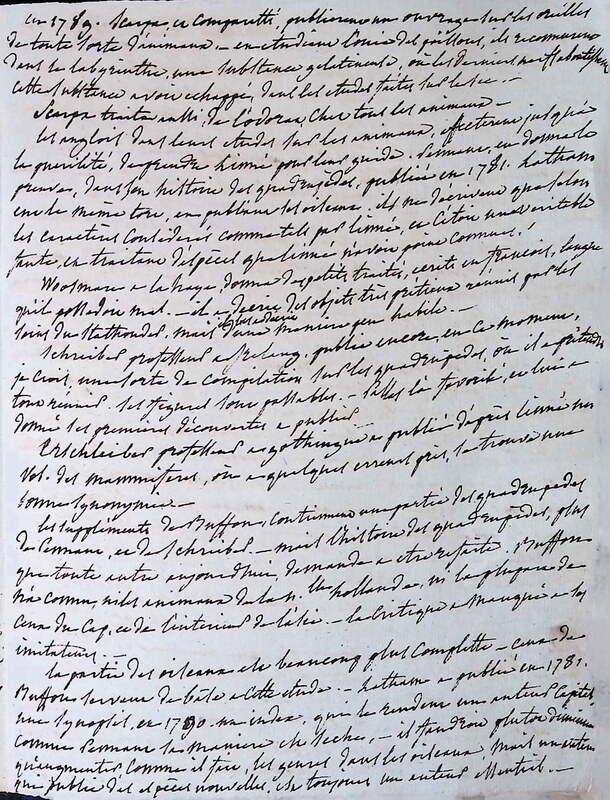 en 1789. Scarpa, et Comparetti, publierent un ouvrage sur les oreilles
de toute sorte d'animaux - en etudiant l'ouie des poissons, ils reconnurent
dans le labyrinthe, une substance gelatineuse, où les derniers nerfs aboutissent
cette substance avoit echappé, dans les etudes faites sur le sec. -
Scarpa traita aussi, de l'odorat, chez tous les animaux -
les anglois dans leurs etudes sur les animaux, affecterent jusqu'à
la puerilité, de prendre linné pour leur guide. Pennant, en donna la
preuve, dans son histoire des quadrupedes, publiée en 1781. Latham
eut le même tort, en publiant les oiseaux. ils ne decrivent que selon
les caracteres considerés comme tels par linné, et c'etoit une veritable
faute, en traitant d'especes que linné n'avoit point connues.
Vosmaer a la haye, donna des petits traités, ecrits en françois, langue
qu'il possedoit mal. - il a decrit des objets très précieux reunis par les
soins du Stathouder, mais d'une maniere peu habile. -
Schreber professeur a Erlang, publie encore, en ce moment,
je crois, une sorte de compilation sur les quadrupedes, où il a prétendu
tout réunir. les figures sont passables. - Pallas l'a favorisé, et lui a
donné ses premières découvertes a publier.
Erxleben professeur a gottingue a publié d'après linné un
vol. des mammiferes, où a quelques erreurs près, se trouve une
bonne synonymie. -
les suppléments de Buffon, contiennent une partie des quadrupedes
de Pennant, et de Schreber. - mais l'histoire des quadrupedes, plus
que toute autre aujourd'hui, demande a etre refaite. Buffon
n'a connu, ni les animaux de la n. hollande, ni la plupart de
ceux du Cap, et de l'interieur de l'asie. - la critique a manqué a ses
imitateurs. -
la partie des oiseaux est beaucoup plus complette - ceux de
Buffon servent de base a cette etude. - Latham a publié en 1781.
une synopsis, en 1790 un index, qui le rendent un auteur capital
comme Pennant sa maniere est seche, - il faudroit plutot diminuer
qu'augmenter comme il fait, les genres dans les oiseaux, mais un auteur
qui publie des especes nouvelles, est toujours un auteur essentiel. -